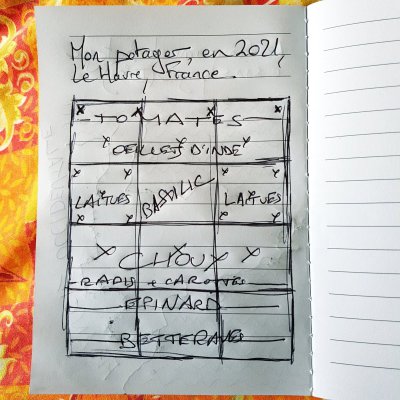 Mon potager, en 2021,
Le Havre, France.
TOMATES
OEILLETS D'INDE
LAITUES BASILIC LAITUES
CHOUX
RADIS + CAROTTES
EPINARD
BETTERAVES